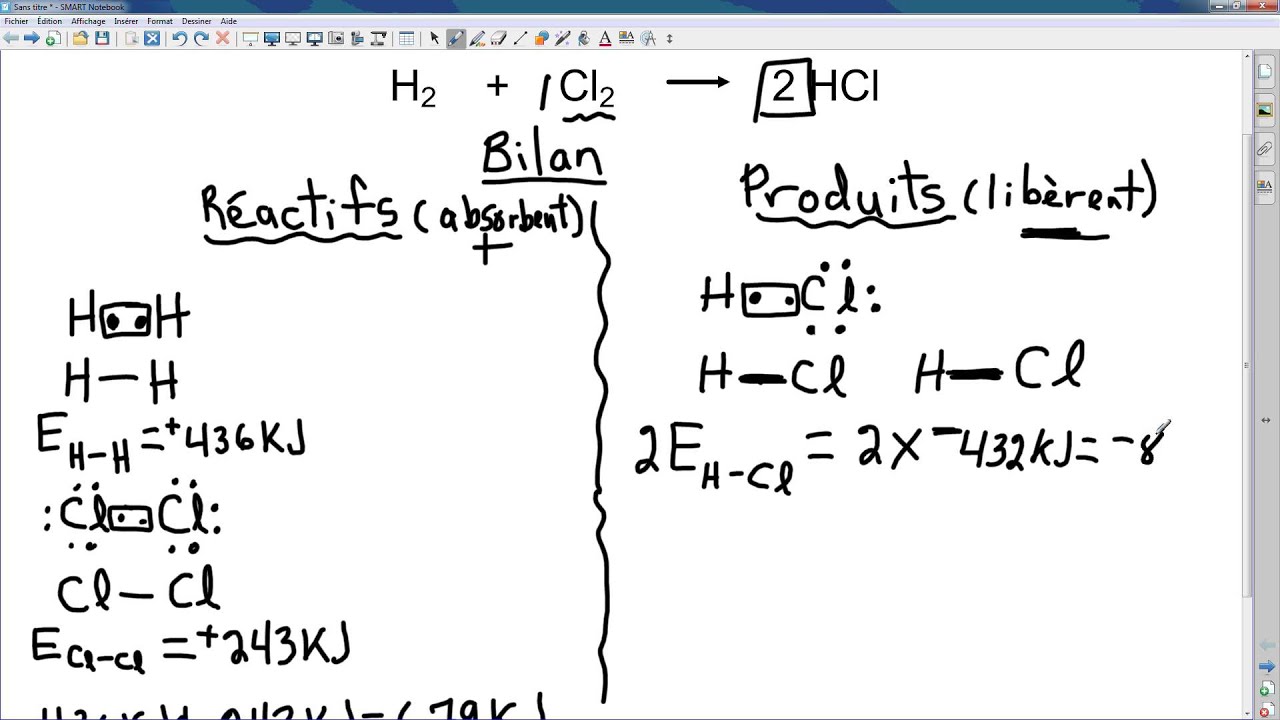 Sans titre * - SMART Notebook
Fichier Édition Affichage Insérer Format Dessiner Aide
H₂ + 1 Cl₂ → 2 HCl
Bilan
Réactifs (absorbent)
+
H : H
H — H
E H-H = +436KJ
:Cl : Cl:
Cl — Cl
E Cl-Cl = +243KJ
Produits (libèrent)
H : Cl:
H — Cl H — Cl
2E H-Cl = 2 X -432KJ = -8